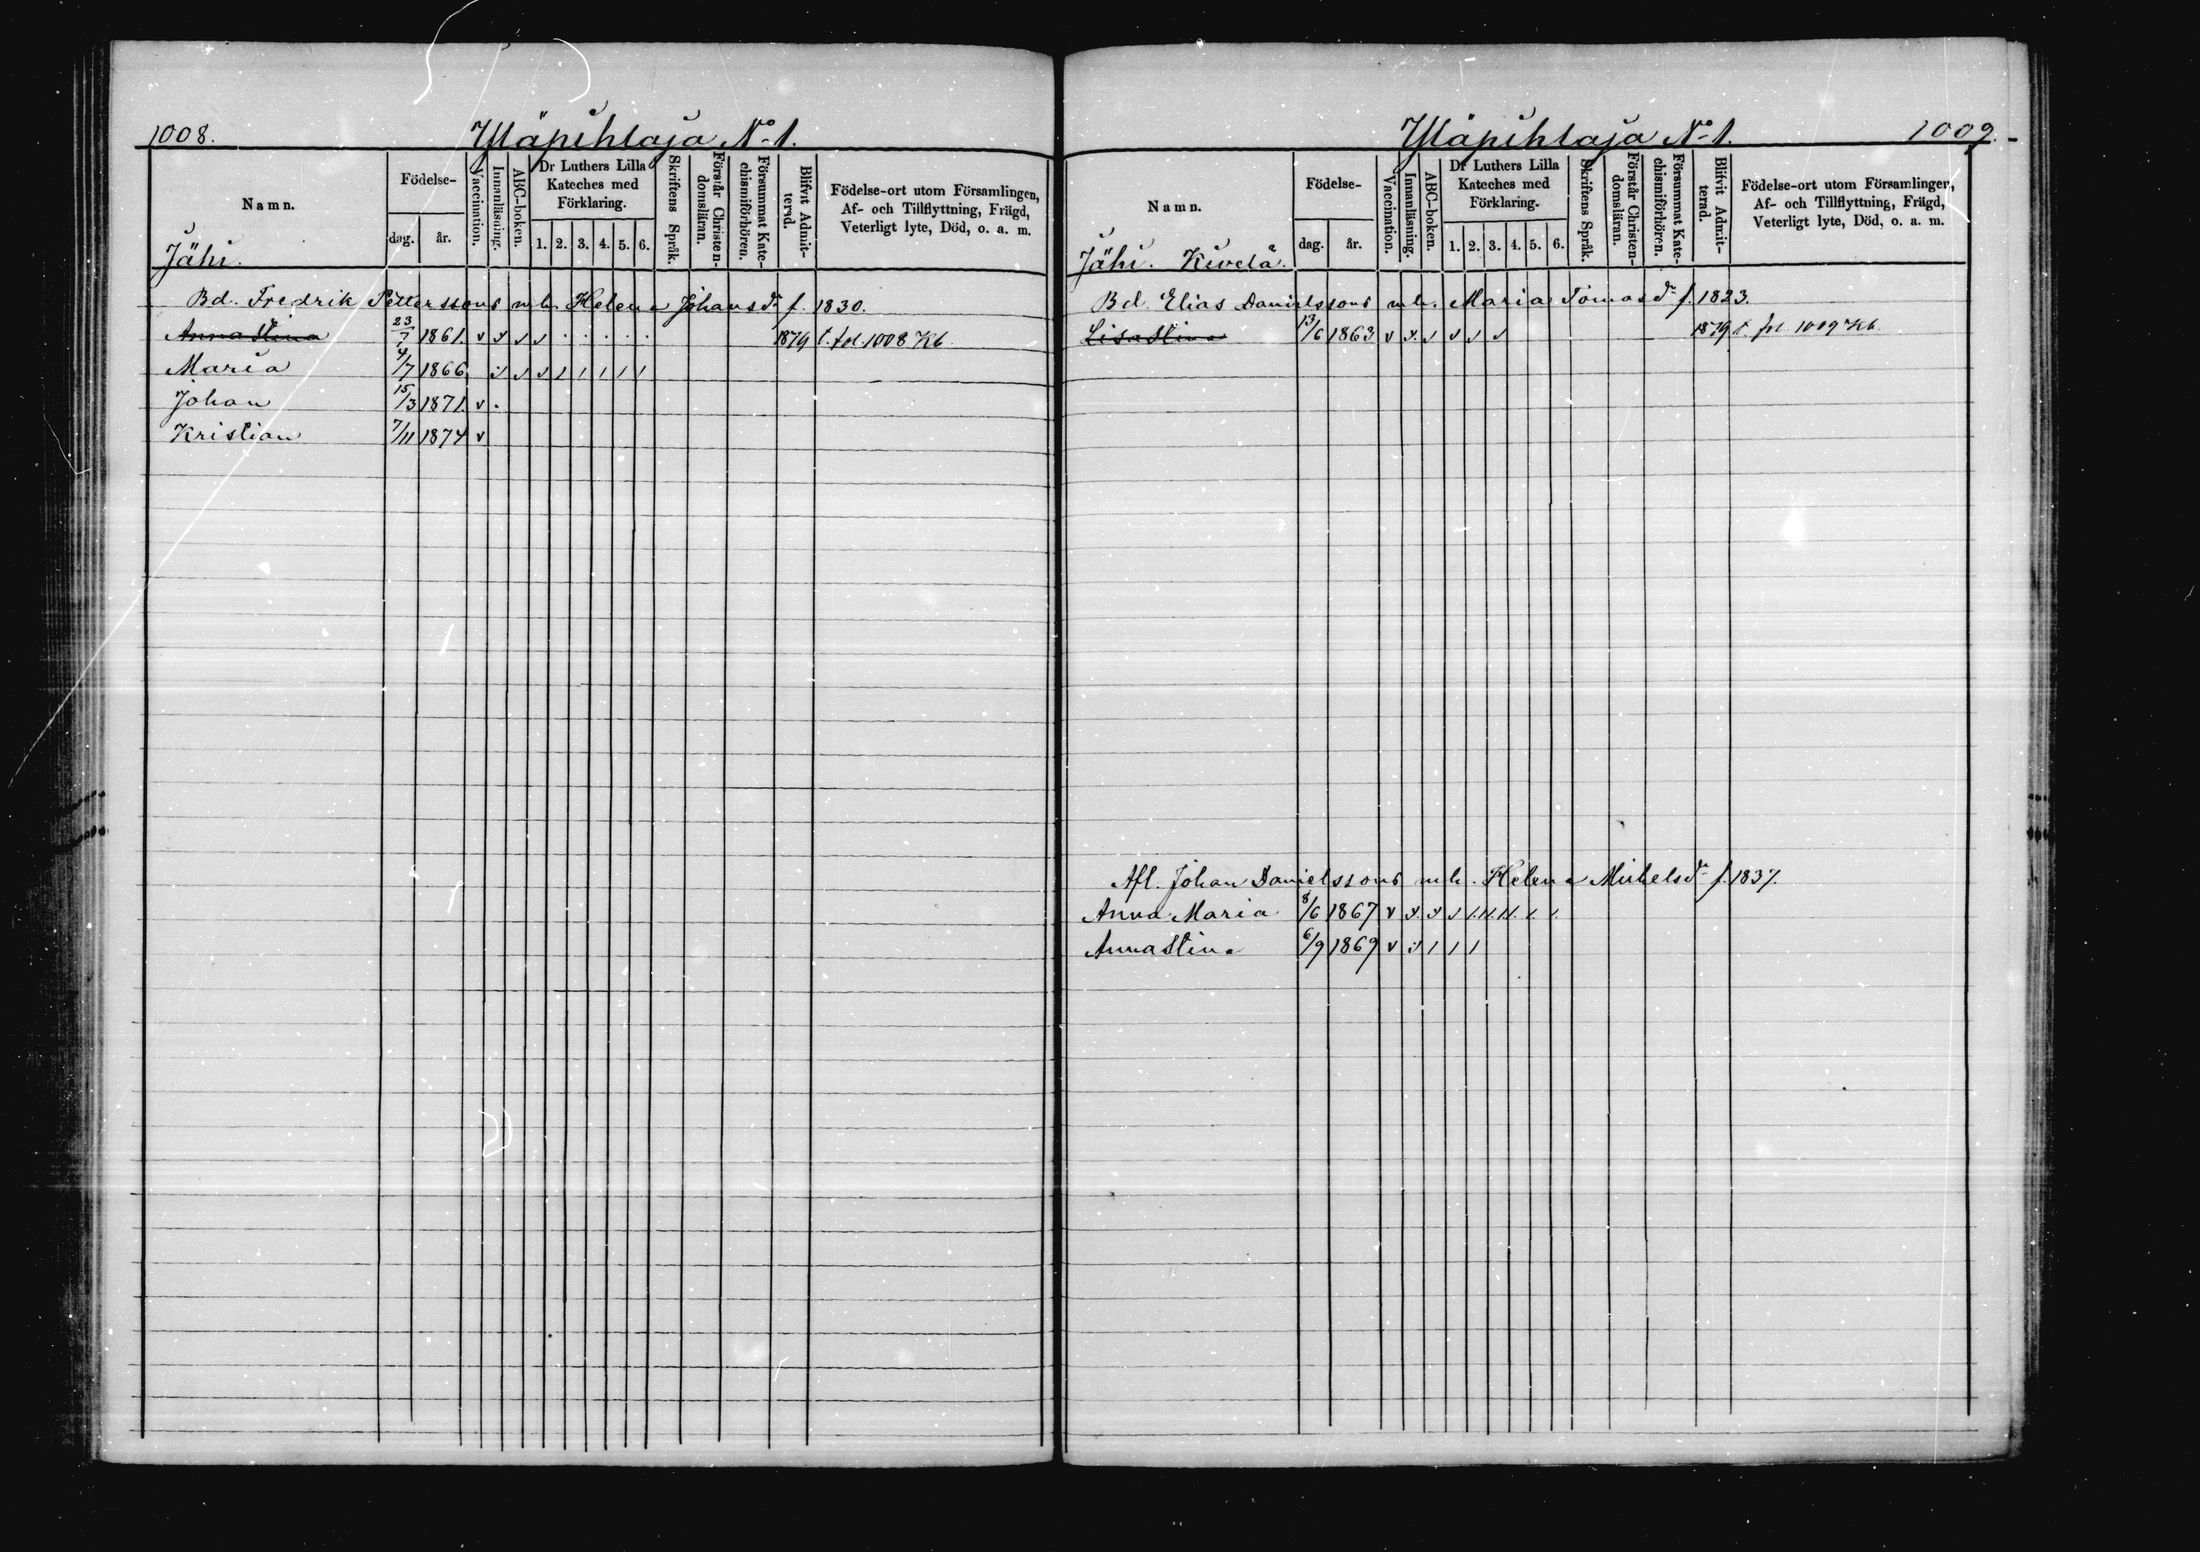 1008.
Yläpihlaja No 1.
Namn.
Födelse-
dag.
år.
Vaccination.
Innanläsning.
ABC-boken.
Dr Luthers Lilla
Kateches med
Förklaring.
1. 2. 3. 4. 5. 6.
Skriftens Språk.
Förstår Christen-
domsläran.
Försummat Kate-
chismiförhören.
Blifvit Admit-
terad.
Födelse-ort utom Församlingen,
Af- och Tillflyttning, Frägd,
Veterligt lyte, Död, o. a. m.
Jähi.
Bd. Fredrik Petterssons m. h. Helena Johansdr f. 1830.
Annastina 23/7 1861. v 1879 t. fol. 1008 Kb.
Maria 4/7 1866
Johan 15/3 1871. v
Kristian 7/11 1874 v
Yläpihlaja No 1.
1009.
Namn.
Födelse-
dag.
år.
Vaccination.
Innanläsning.
ABC-boken.
Dr Luthers Lilla
Kateches med
Förklaring.
1. 2. 3. 4. 5. 6.
Skriftens Språk.
Förstår Christen-
domsläran.
Försummat Kate-
chismiförhören.
Blifvit Admit-
terad.
Födelse-ort utom Församlingen,
Af- och Tillflyttning, Frägd,
Veterligt lyte, Död, o. a. m.
Jähi. Kivelä.
Bd. Elias Danielssons m. h. Maria Tomasdr f. 1823.
Lisastina 13/6 1863 v 1879 t. fol. 1009 Kb.
Afl. Johan Danielssons m. h. Helena Mickelsdr f. 1837.
Anna Maria 8/6 1867 v
Annastina 6/9 1869 v